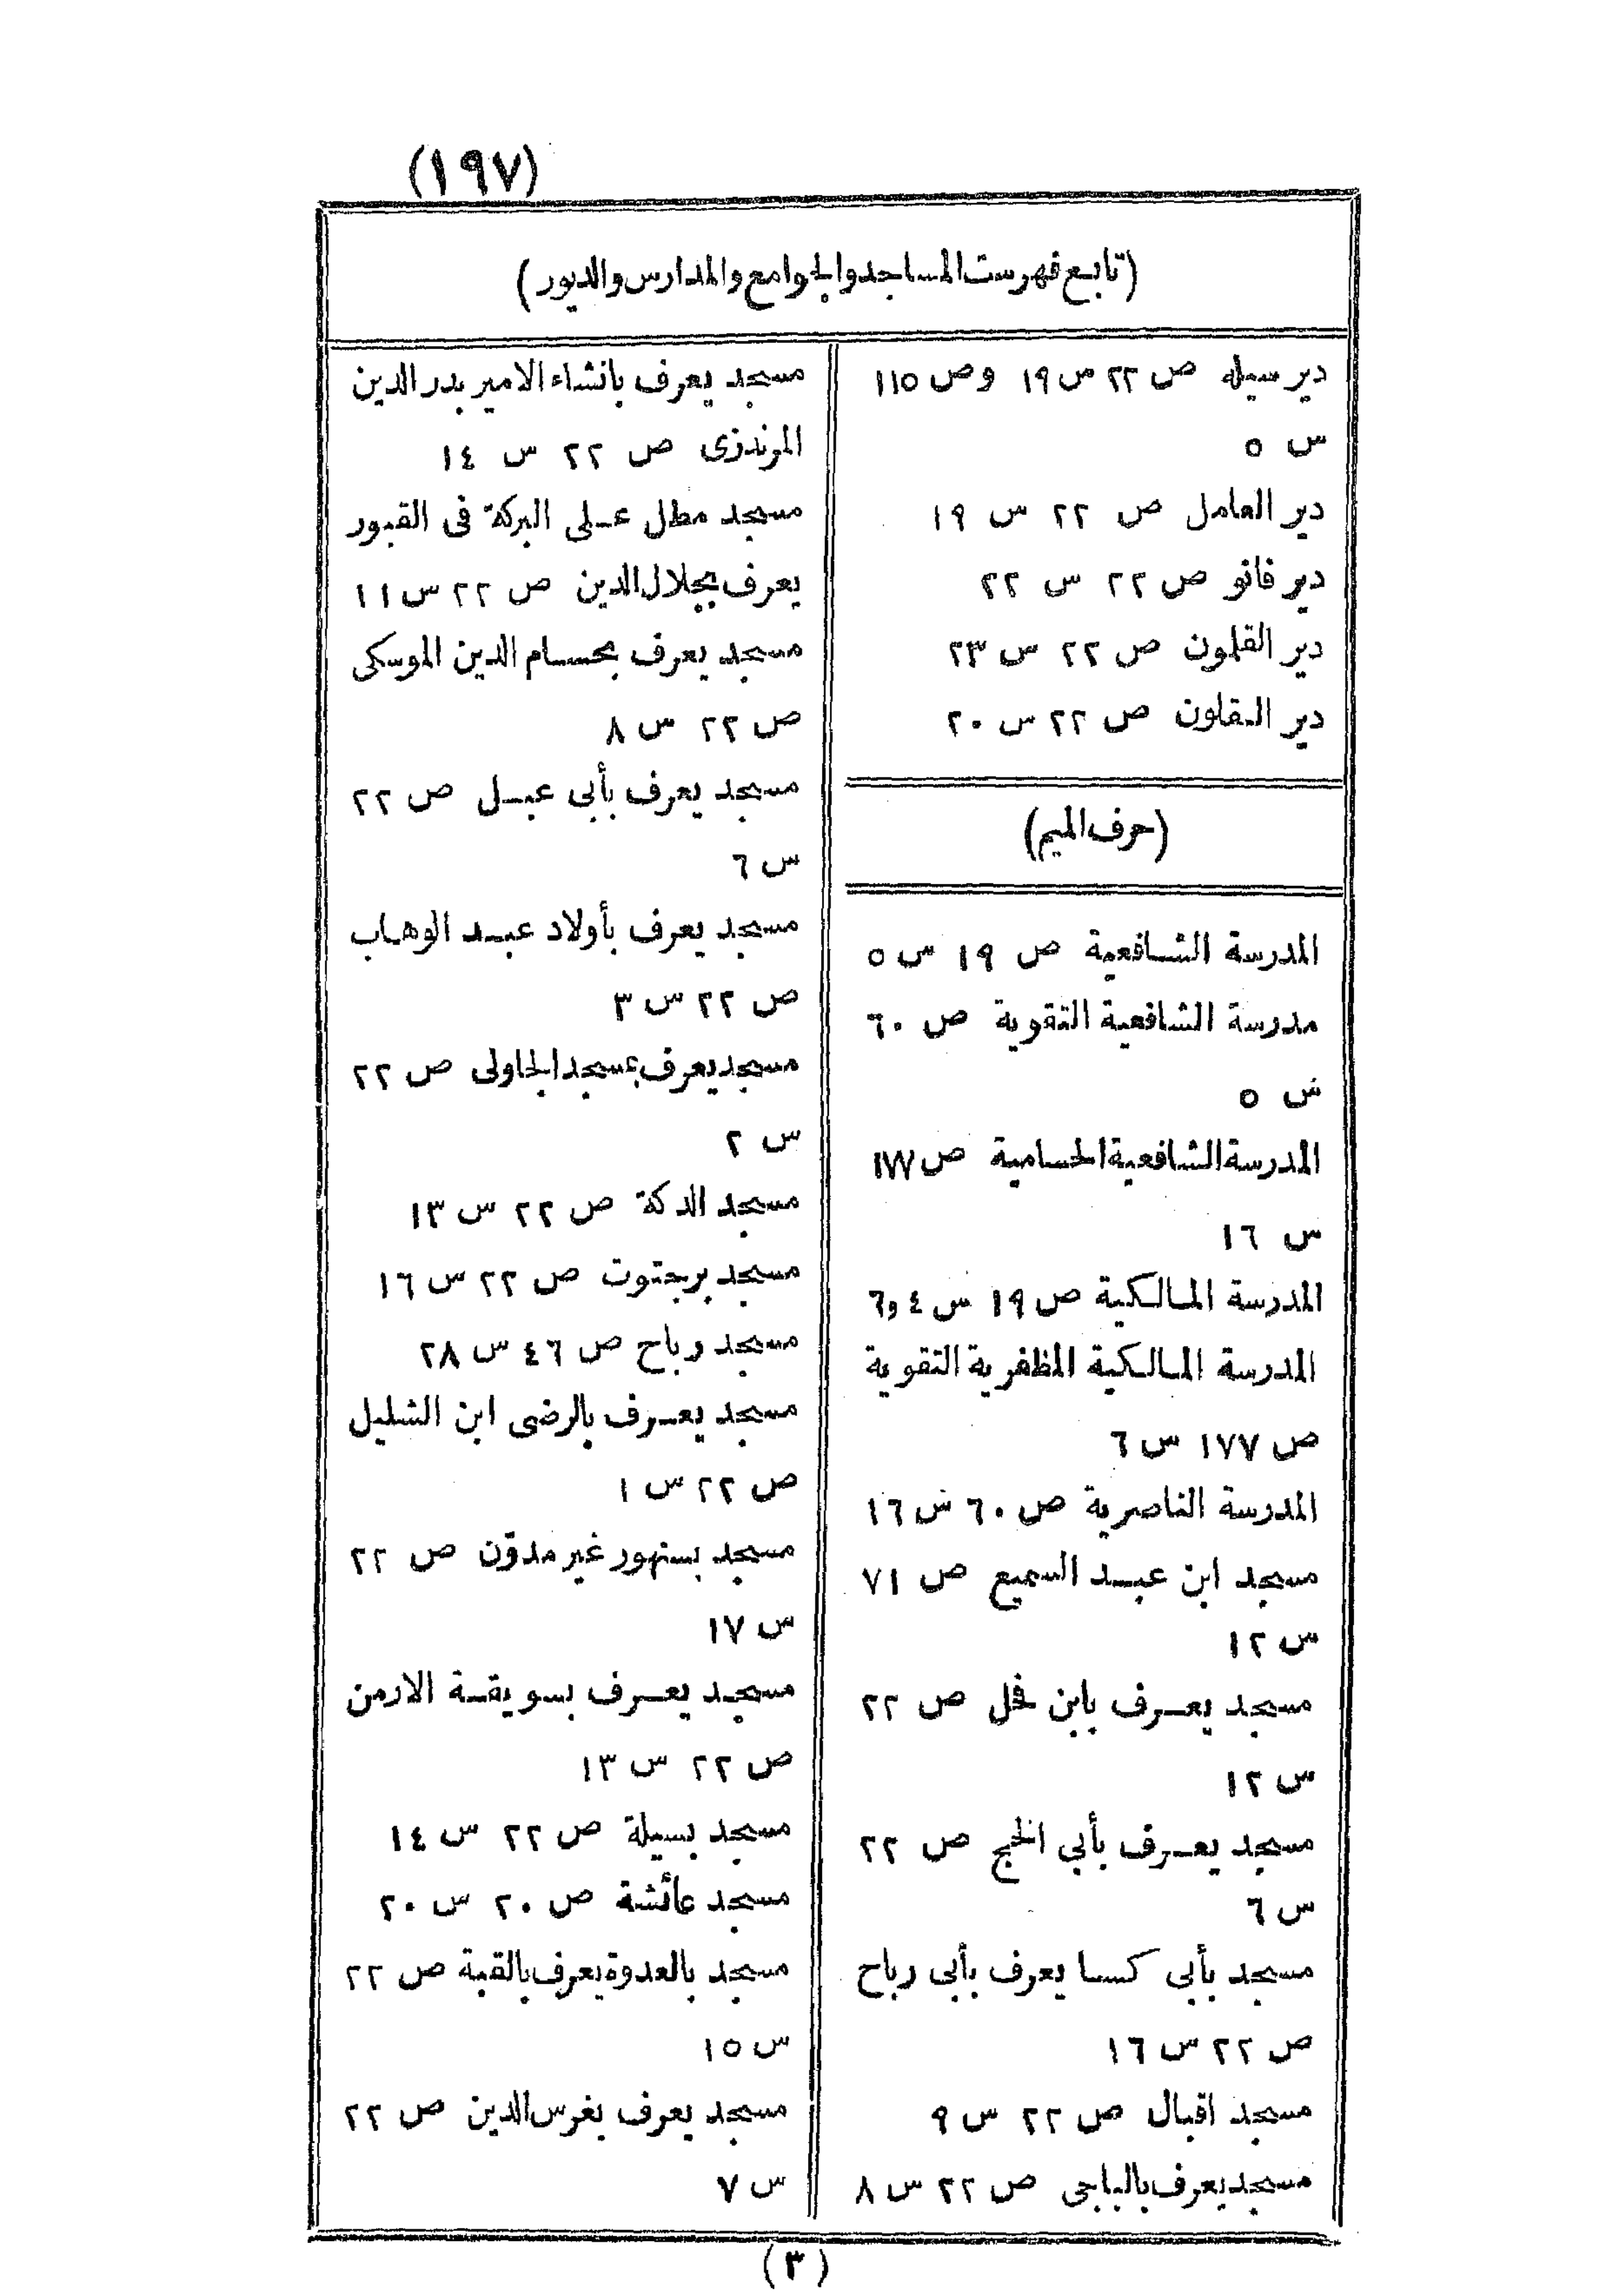 (١٩٧)
(تابع فهرست المساجد والجوامع والمدارس والديور)
دير سيله ص ٢٢ س ١٩ وص ١١٥
س ٥
دير العامل ص ٢٢ س ١٩
دير فانو ص ٢٢ س ٢٢
دير القلمون ص ٢٢ س ٢٣
دير النقلون ص ٢٢ س ٢٠
(حرف الميم)
المدرسة الشافعية ص ١٩ س ٥
مدرسة الشافعية التقوية ص ٦٠
س ٥
المدرسة الشافعية الحسامية ص ١٧٧
س ١٦
المدرسة المالكية ص ١٩ س ٤ و٦
المدرسة المالكية المظفرية التقوية
ص ١٧٧ س ٦
المدرسة الناصرية ص ٦٠ س ١٦
مسجد ابن عبد السميع ص ٧١
س ١٢
مسجد يعرف بابن فحل ص ٢٢
س ١٢
مسجد يعرف بأبي ص ٢٢
س ٦
مسجد بأبي كسا يعرف بأبي رباح
ص ٢٢ س ١٦
مسجد اقبال ص ٢٢ س ٩
مسجد يعرف بالباجى ص ٢٢ س ٨
مسجد يعرف بانشاء الامير بدر الدين
المرندزى ص ٢٢ س ١٤
مسجد مطل على البركة فى القبور
يعرف بجلال الدين ص ٢٢ س ١١
مسجد يعرف بحسام الدين الموسكى
ص ٢٢ س ٨
مسجد يعرف بأبى عبل ص ٢٢
س ٦
مسجد يعرف بأولاد عبد الوهاب
ص ٢٢ س ٣
مسجد يعرف بمسجد الجاولى ص ٢٢
س ٢
مسجد الدكة ص ٢٢ س ١٣
مسجد برجتوت ص ٢٢ س ١٦
مسجد رباح ص ٤٦ س ٢٨
مسجد يعرف بالرضى ابن الشليل
ص ٢٢ س ١
مسجد بسنهور غير مدوّن ص ٢٢
س ١٧
مسجد يعرف بسويقة الارمن
ص ٢٢ س ١٣
مسجد بسيلة ص ٢٢ س ١٤
مسجد عائشة ص ٢٠ س ٢٠
مسجد بالعدوة يعرف بالقبة ص ٢٢
س ١٥
مسجد يعرف بغرس الدين ص ٢٢
س ٧
(٣)